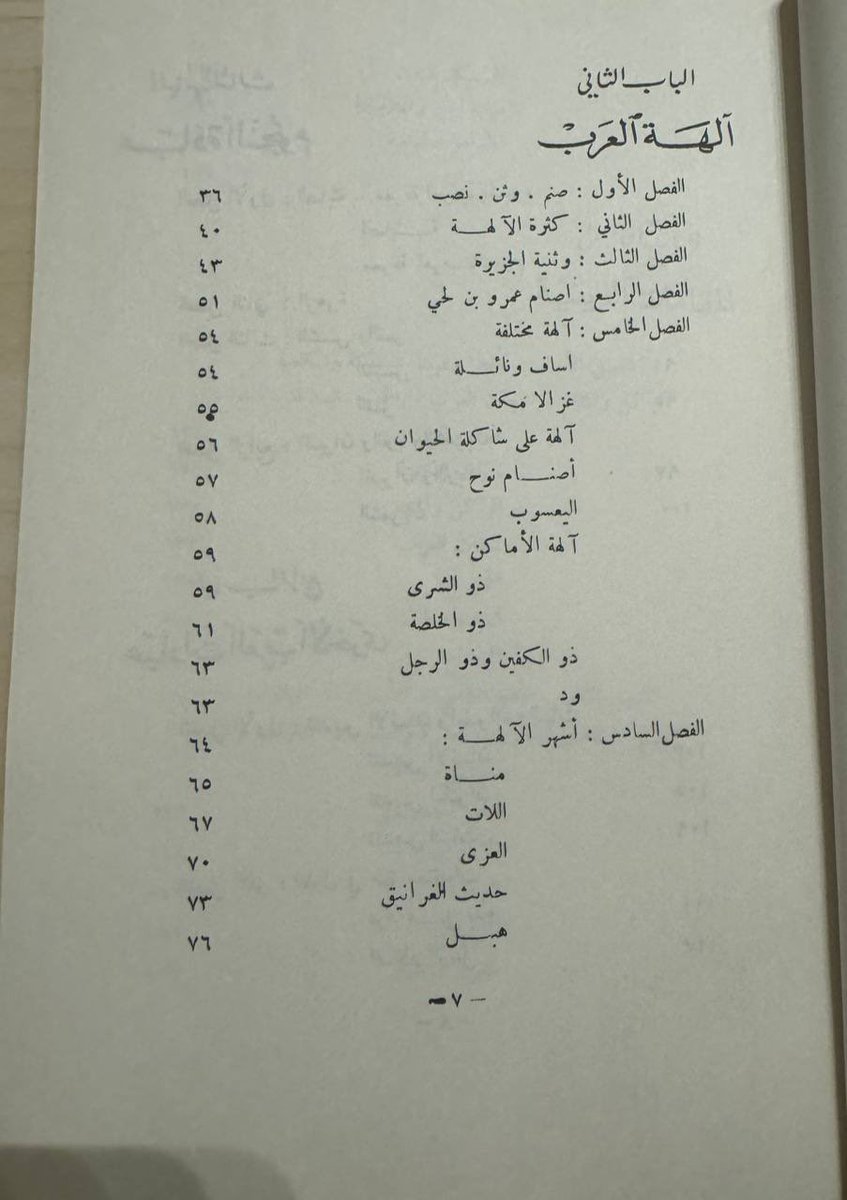 الباب الثاني
آلهة العرب
الفصل الأول : صنم . وثن . نصب ٣٦
الفصل الثاني : كثرة الآلهة ٤٠
الفصل الثالث : وثنية الجزيرة ٤٣
الفصل الرابع : اصنام عمرو بن لحي ٥١
الفصل الخامس : آلهة مختلفة ٥٤
اساف ونائلة ٥٤
غزالا مكة ٥٥
آلهة على شاكلة الحيوان ٥٦
أصنام نوح ٥٧
اليعسوب ٥٨
آلهة الأماكن : ٥٩
ذو الشرى ٥٩
ذو الخلصة ٦١
ذو الكفين وذو الرجل ٦٣
ود ٦٣
الفصل السادس : أشهر الآلهة : ٦٤
مناة ٦٥
اللات ٦٧
العزى ٧٠
حديث الغرانيق ٧٣
هبل ٧٦
— ٧ —